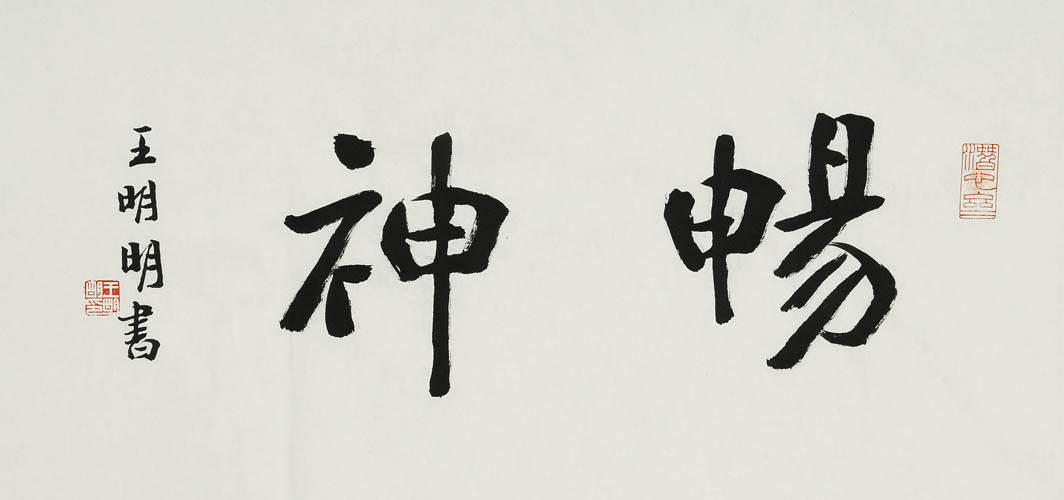 暢神
王明明書